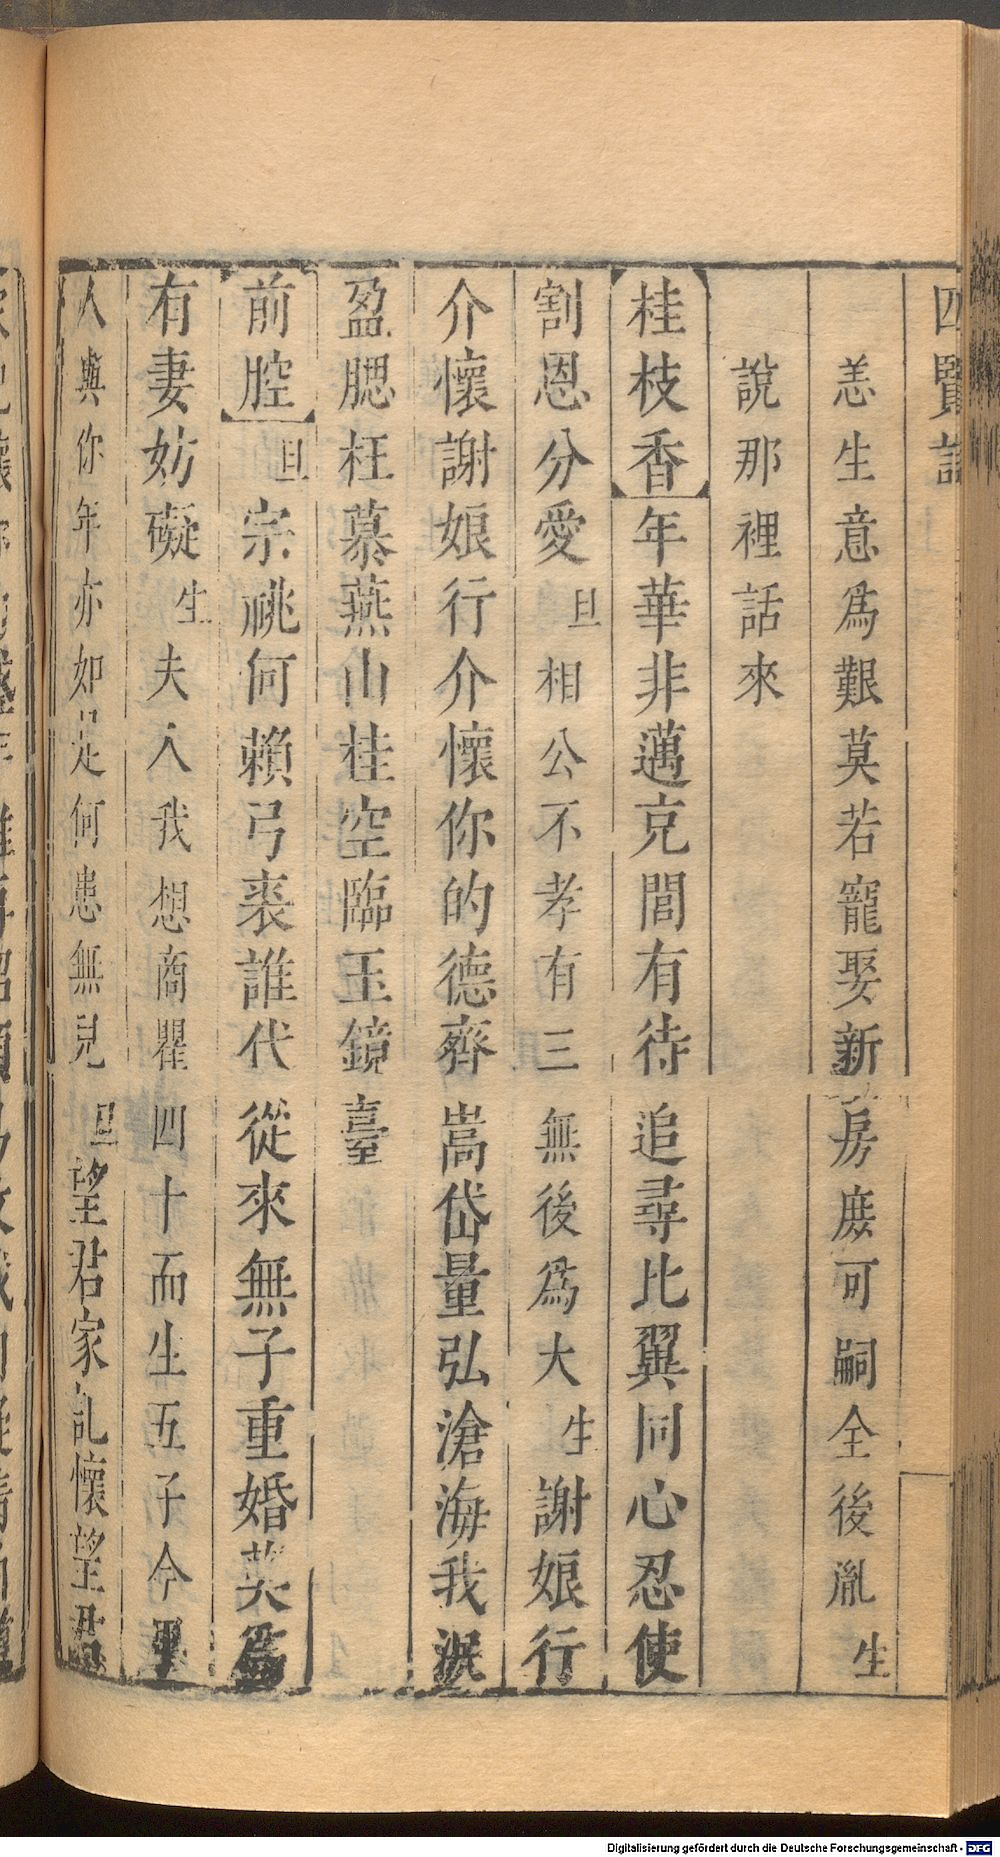 四賢記
恙生意爲艱莫若寵娶新房庶可嗣全後胤生
說那裡話來
桂枝香年華非邁克閭有待追尋比翼同心忍使
割恩分愛旦相公不孝有三無後爲大生謝娘行
介懷謝娘行介懷你的德齊嵩岱量弘滄海我淚
盈腮枉慕燕山桂空臨玉鏡臺
前腔旦宗祧何賴弓裘誰代從來無子重婚莫爲
有妻妨礙生夫人我想商瞿四十而生五子今
人與你年亦如是何患無兒旦望君家乩懷望君
Digitalisierung gefördert durch die Deutsche Forschungsgemeinschaft - DFG